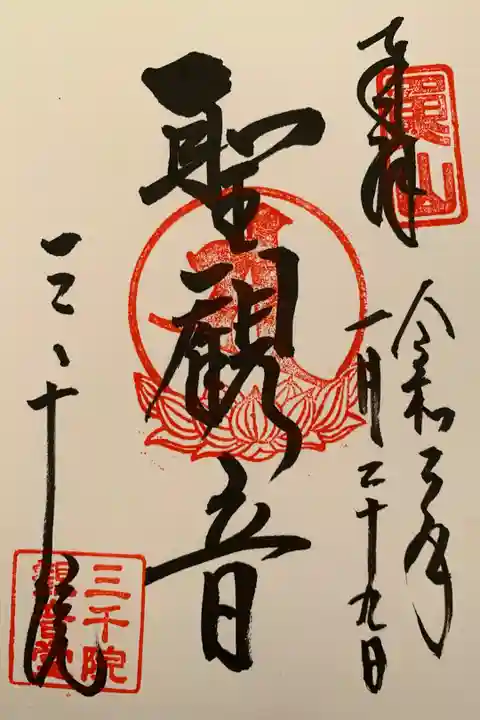 奉拝
令和二年
一月二十九日
聖観音
三千院
三千院
観音堂